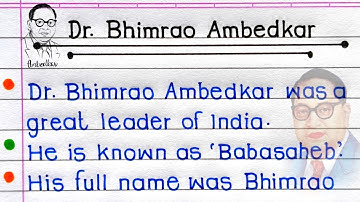 Dr. Bhimrao Ambedkar
Ambedkar
Dr. Bhimrao Ambedkar was a
great leader of India.
He is known as ‘Babasaheb’.
His full name was Bhimrao